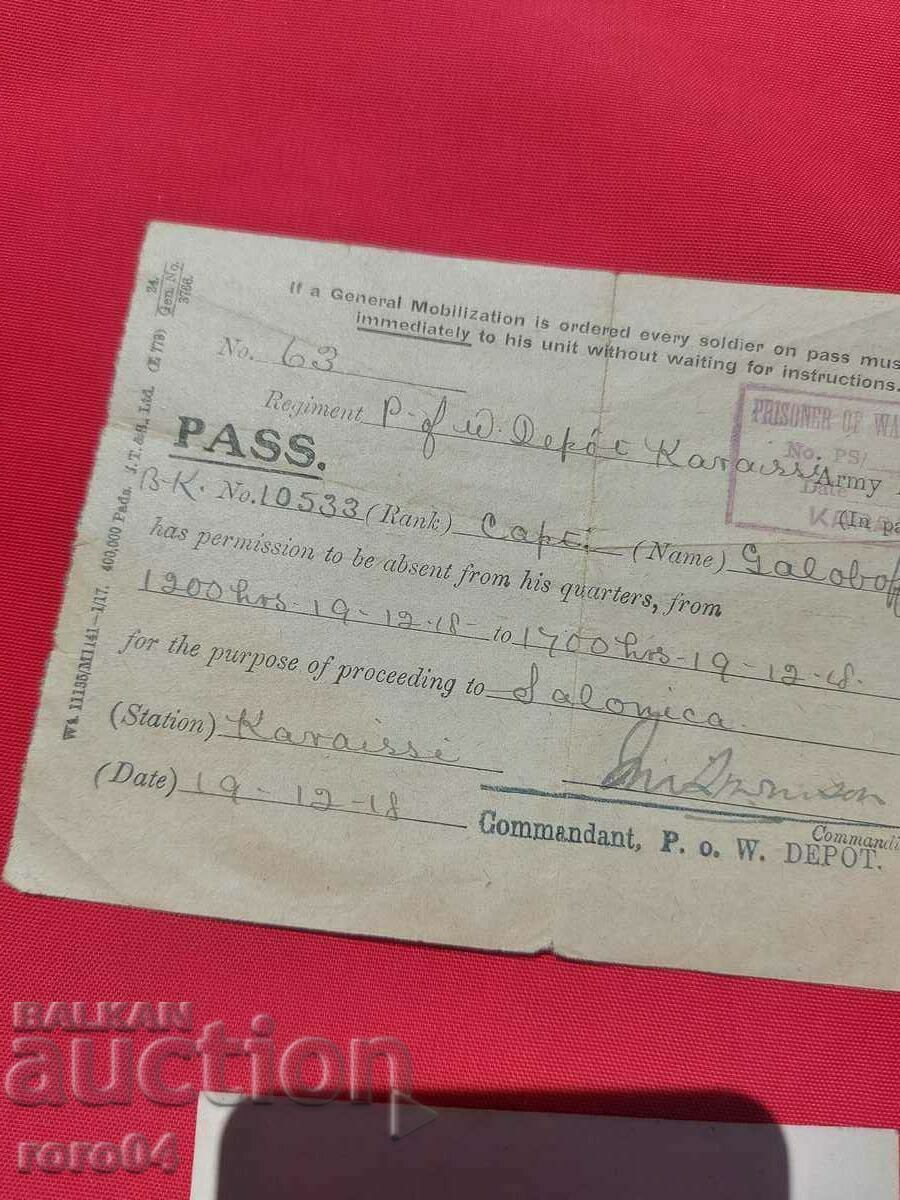 If a General Mobilization is ordered every soldier on pass mus
immediately to his unit without waiting for instructions.
24.
Gen. No.
3766.
No. 63
Regiment P. of W. Depôt Karaissi Army
PRISONER OF WA
No. PS/
Date
KA
(In pa
PASS.
B-K. No. 10533 (Rank) Capt. (Name) Galobof
has permission to be absent from his quarters, from
1200hrs-19-12-18 to 1700hrs-19-12-18.
for the purpose of proceeding to Salonica
(Station) Karaissi
(Date) 19-12-18
Commandi
Commandant, P. o. W. DEPOT.
Wt. 11135/M1141-1/17. 400,000 Pads. J.T.&S., Ltd. (E 779)
BALKAN
auction
roro04